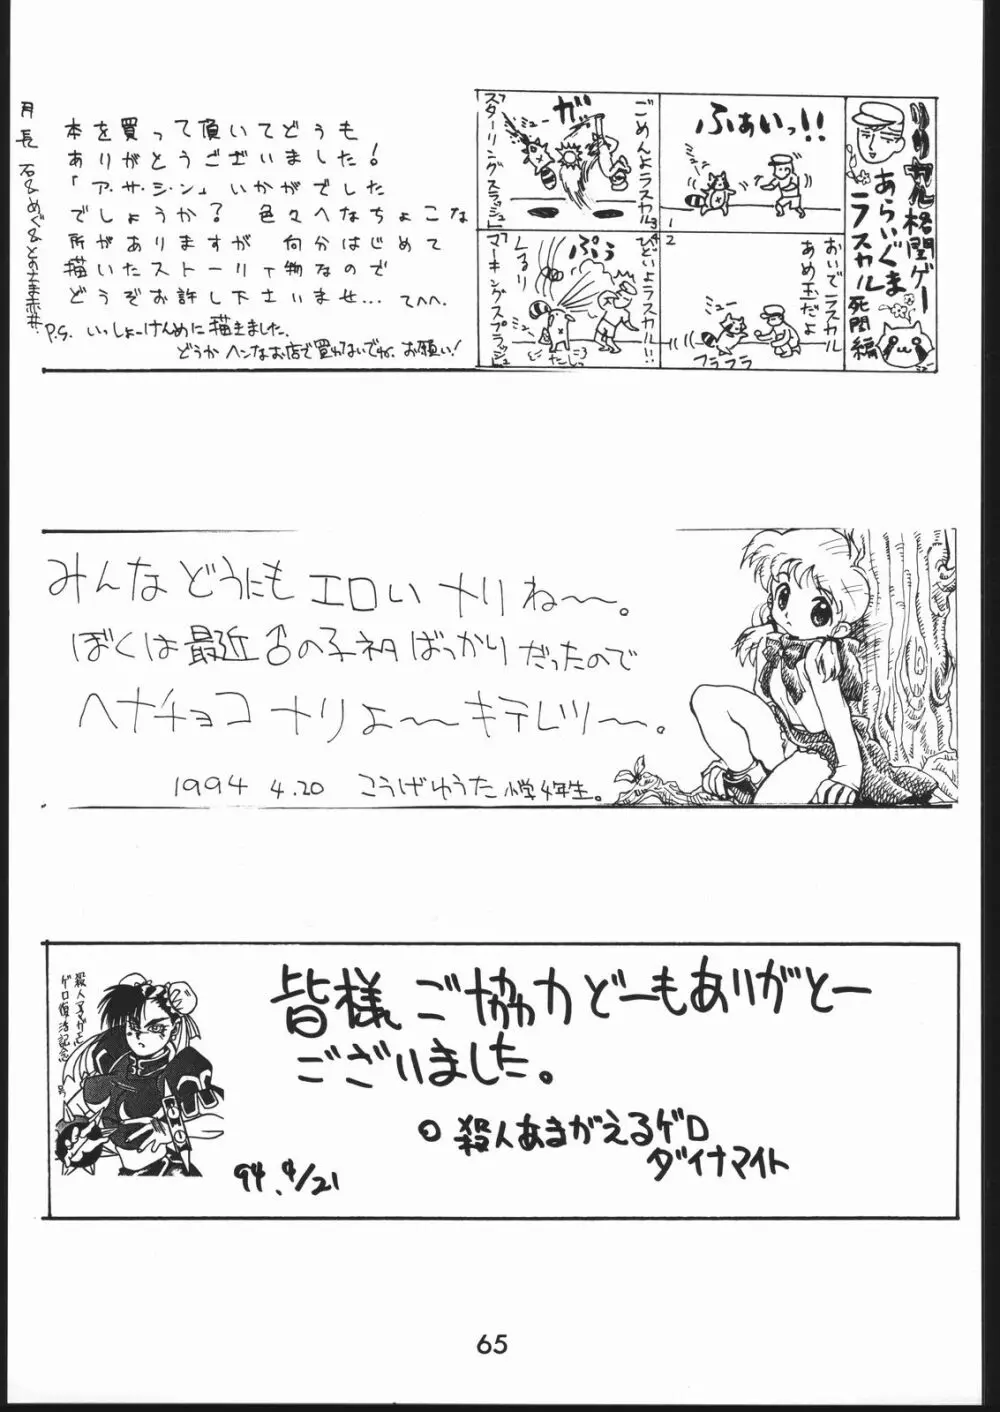 月長石&めぐ&とのさま赤井
本を買って頂いてどうも
ありがとうございました!
「ア・サ・シ・ン」いかがでした
でしょうか? 色々へなちょこな
所がありますが 何分はじめて
描いたストーリィ物なので
どうぞお許し下さいませ… てへへ.
P.S. いっしょーけんめに描きました.
どうかヘンなお店で買わないでね. お願い!
リリカル格闘ゲー
あらいぐま
ラスカル
死闘編
1
ふぁいっ!!
2
おいでラスカル
あめ玉だよ
ミュー
フラフラ
3
ごめんよラスカル
ガ
「スターリングスラッシュ」
4
ひどいよラスカル!!
ぷぅ
ミュー
「マーキングスプラッシュ」
みんなどうにもエロいナリね〜〜。
ぼくは最近♂の子ネタばっかりだったので
ヘナチョコナリよ〜〜キテレツ〜〜。
1994 4.20 こうげゆうた 小学4年生。
殺人アマガエル
ゲロ復活記念
皆様ご協力どーもありがとー
ございました。
○ 殺人あまがえるゲロ
ダイナマイト
94. 4/21
65